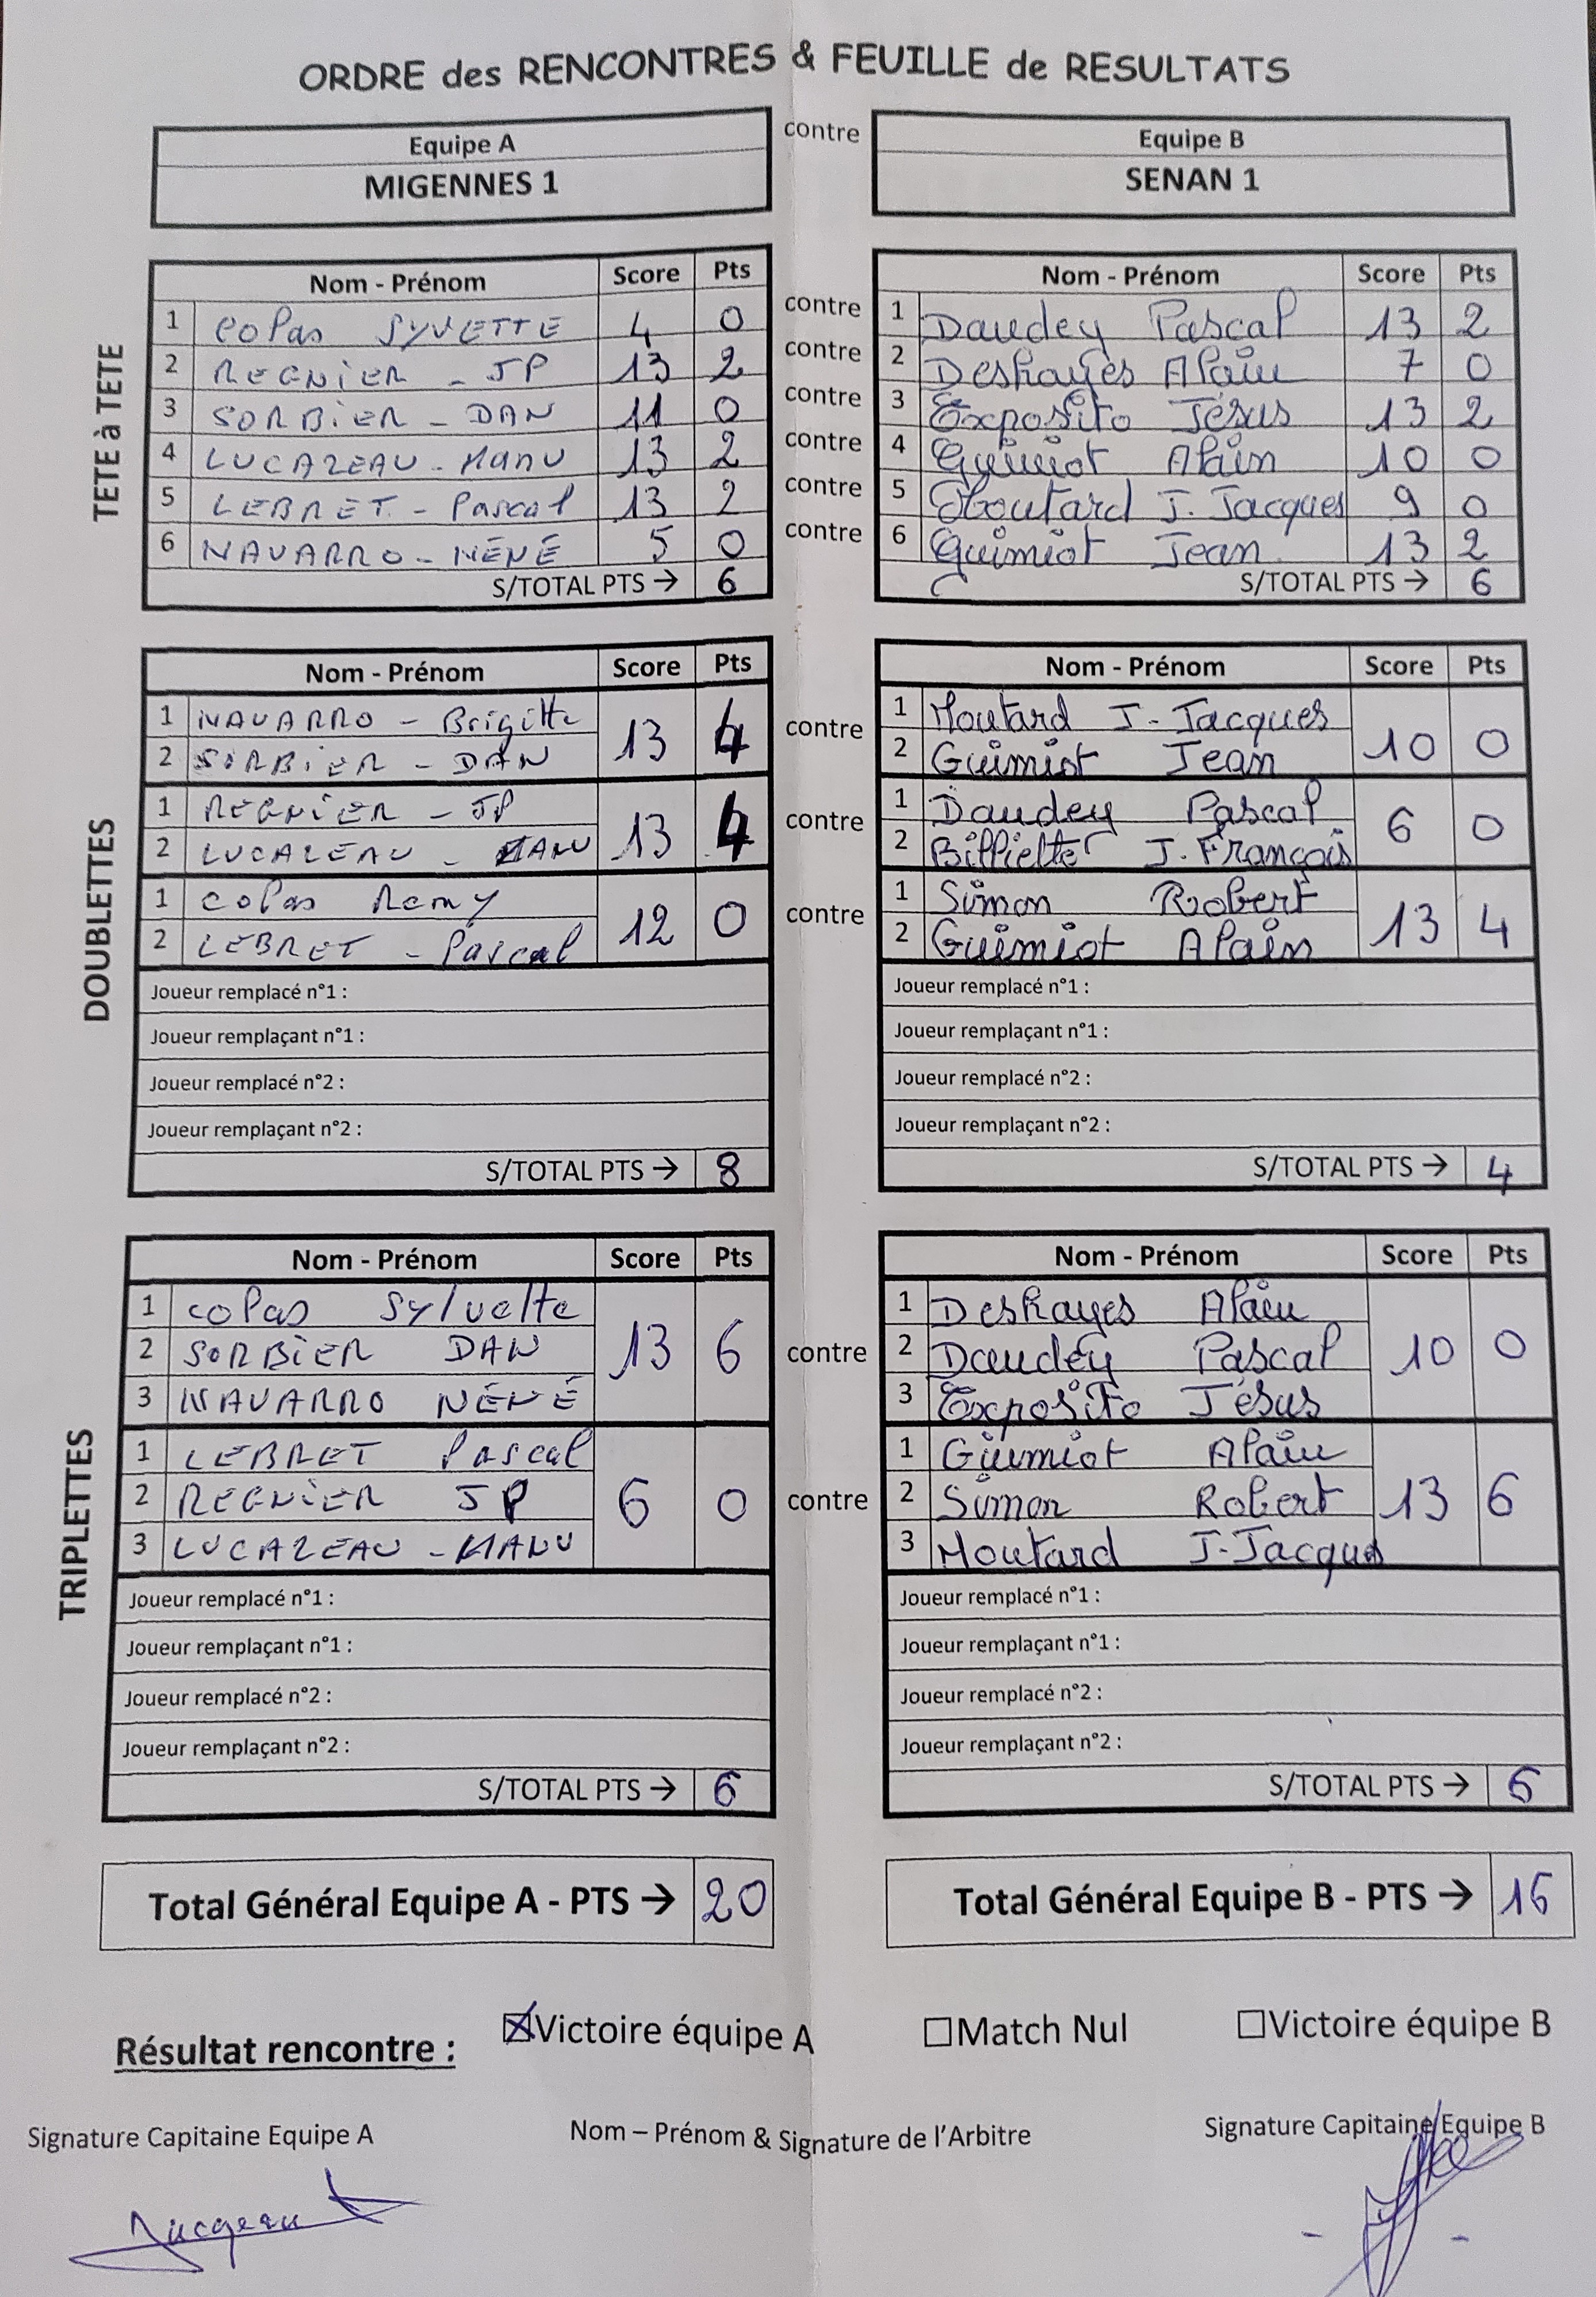 ORDRE des RENCONTRES & FEUILLE de RESULTATS
Equipe A contre Equipe B
MIGENNES 1 SENAN 1
TETE à TETE
Nom - Prénom Score Pts Nom - Prénom Score Pts
1 coPas SYVETTE 4 0 contre 1 Daudey Pascal 13 2
2 REGNIER - JP 13 2 contre 2 Deshayes Alain 7 0
3 SORBIER - DAN 11 0 contre 3 Exposito Jésus 13 2
4 LUCAZEAU - Manu 13 2 contre 4 Guimiot Alain 10 0
5 LEBRET - Pascal 13 2 contre 5 Moutard J. Jacques 9 0
6 NAVARRO - NÉNÉ 5 0 contre 6 Guimiot Jean 13 2
S/TOTAL PTS → 6 S/TOTAL PTS → 6
DOUBLETTES
Nom - Prénom Score Pts Nom - Prénom Score Pts
1 NAVARRO - Brigitte 13 4 contre 1 Moutard J- Jacques 10 0
2 SORBIER - DAN 2 Guimiot Jean
1 REGNIER - JP 13 4 contre 1 Daudey Pascal 6 0
2 LUCAZEAU - MANU 2 Billiette J. François
1 coPas Remy 12 0 contre 1 Simon Robert 13 4
2 LEBRET - Pascal 2 Guimiot Alain
Joueur remplacé n°1 : Joueur remplacé n°1 :
Joueur remplaçant n°1 : Joueur remplaçant n°1 :
Joueur remplacé n°2 : Joueur remplacé n°2 :
Joueur remplaçant n°2 : Joueur remplaçant n°2 :
S/TOTAL PTS → 8 S/TOTAL PTS → 4
TRIPLETTES
Nom - Prénom Score Pts Nom - Prénom Score Pts
1 coPas Sylvette 13 6 contre 1 Deshayes Alain 10 0
2 SORBIER DAN 2 Daudey Pascal
3 NAVARRO NÉNÉ 3 Exposito Jésus
1 LEBRET Pascal 6 0 contre 1 Guimiot Alain 13 6
2 REGNIER JP 2 Simon Robert
3 LUCAZEAU - MANU 3 Moutard J-Jacques
Joueur remplacé n°1 : Joueur remplacé n°1 :
Joueur remplaçant n°1 : Joueur remplaçant n°1 :
Joueur remplacé n°2 : Joueur remplacé n°2 :
Joueur remplaçant n°2 : Joueur remplaçant n°2 :
S/TOTAL PTS → 6 S/TOTAL PTS → 6
Total Général Equipe A - PTS → 20 Total Général Equipe B - PTS → 16
Résultat rencontre : ☒Victoire équipe A ☐Match Nul ☐Victoire équipe B
Signature Capitaine Equipe A Nom – Prénom & Signature de l'Arbitre Signature Capitaine Equipe B